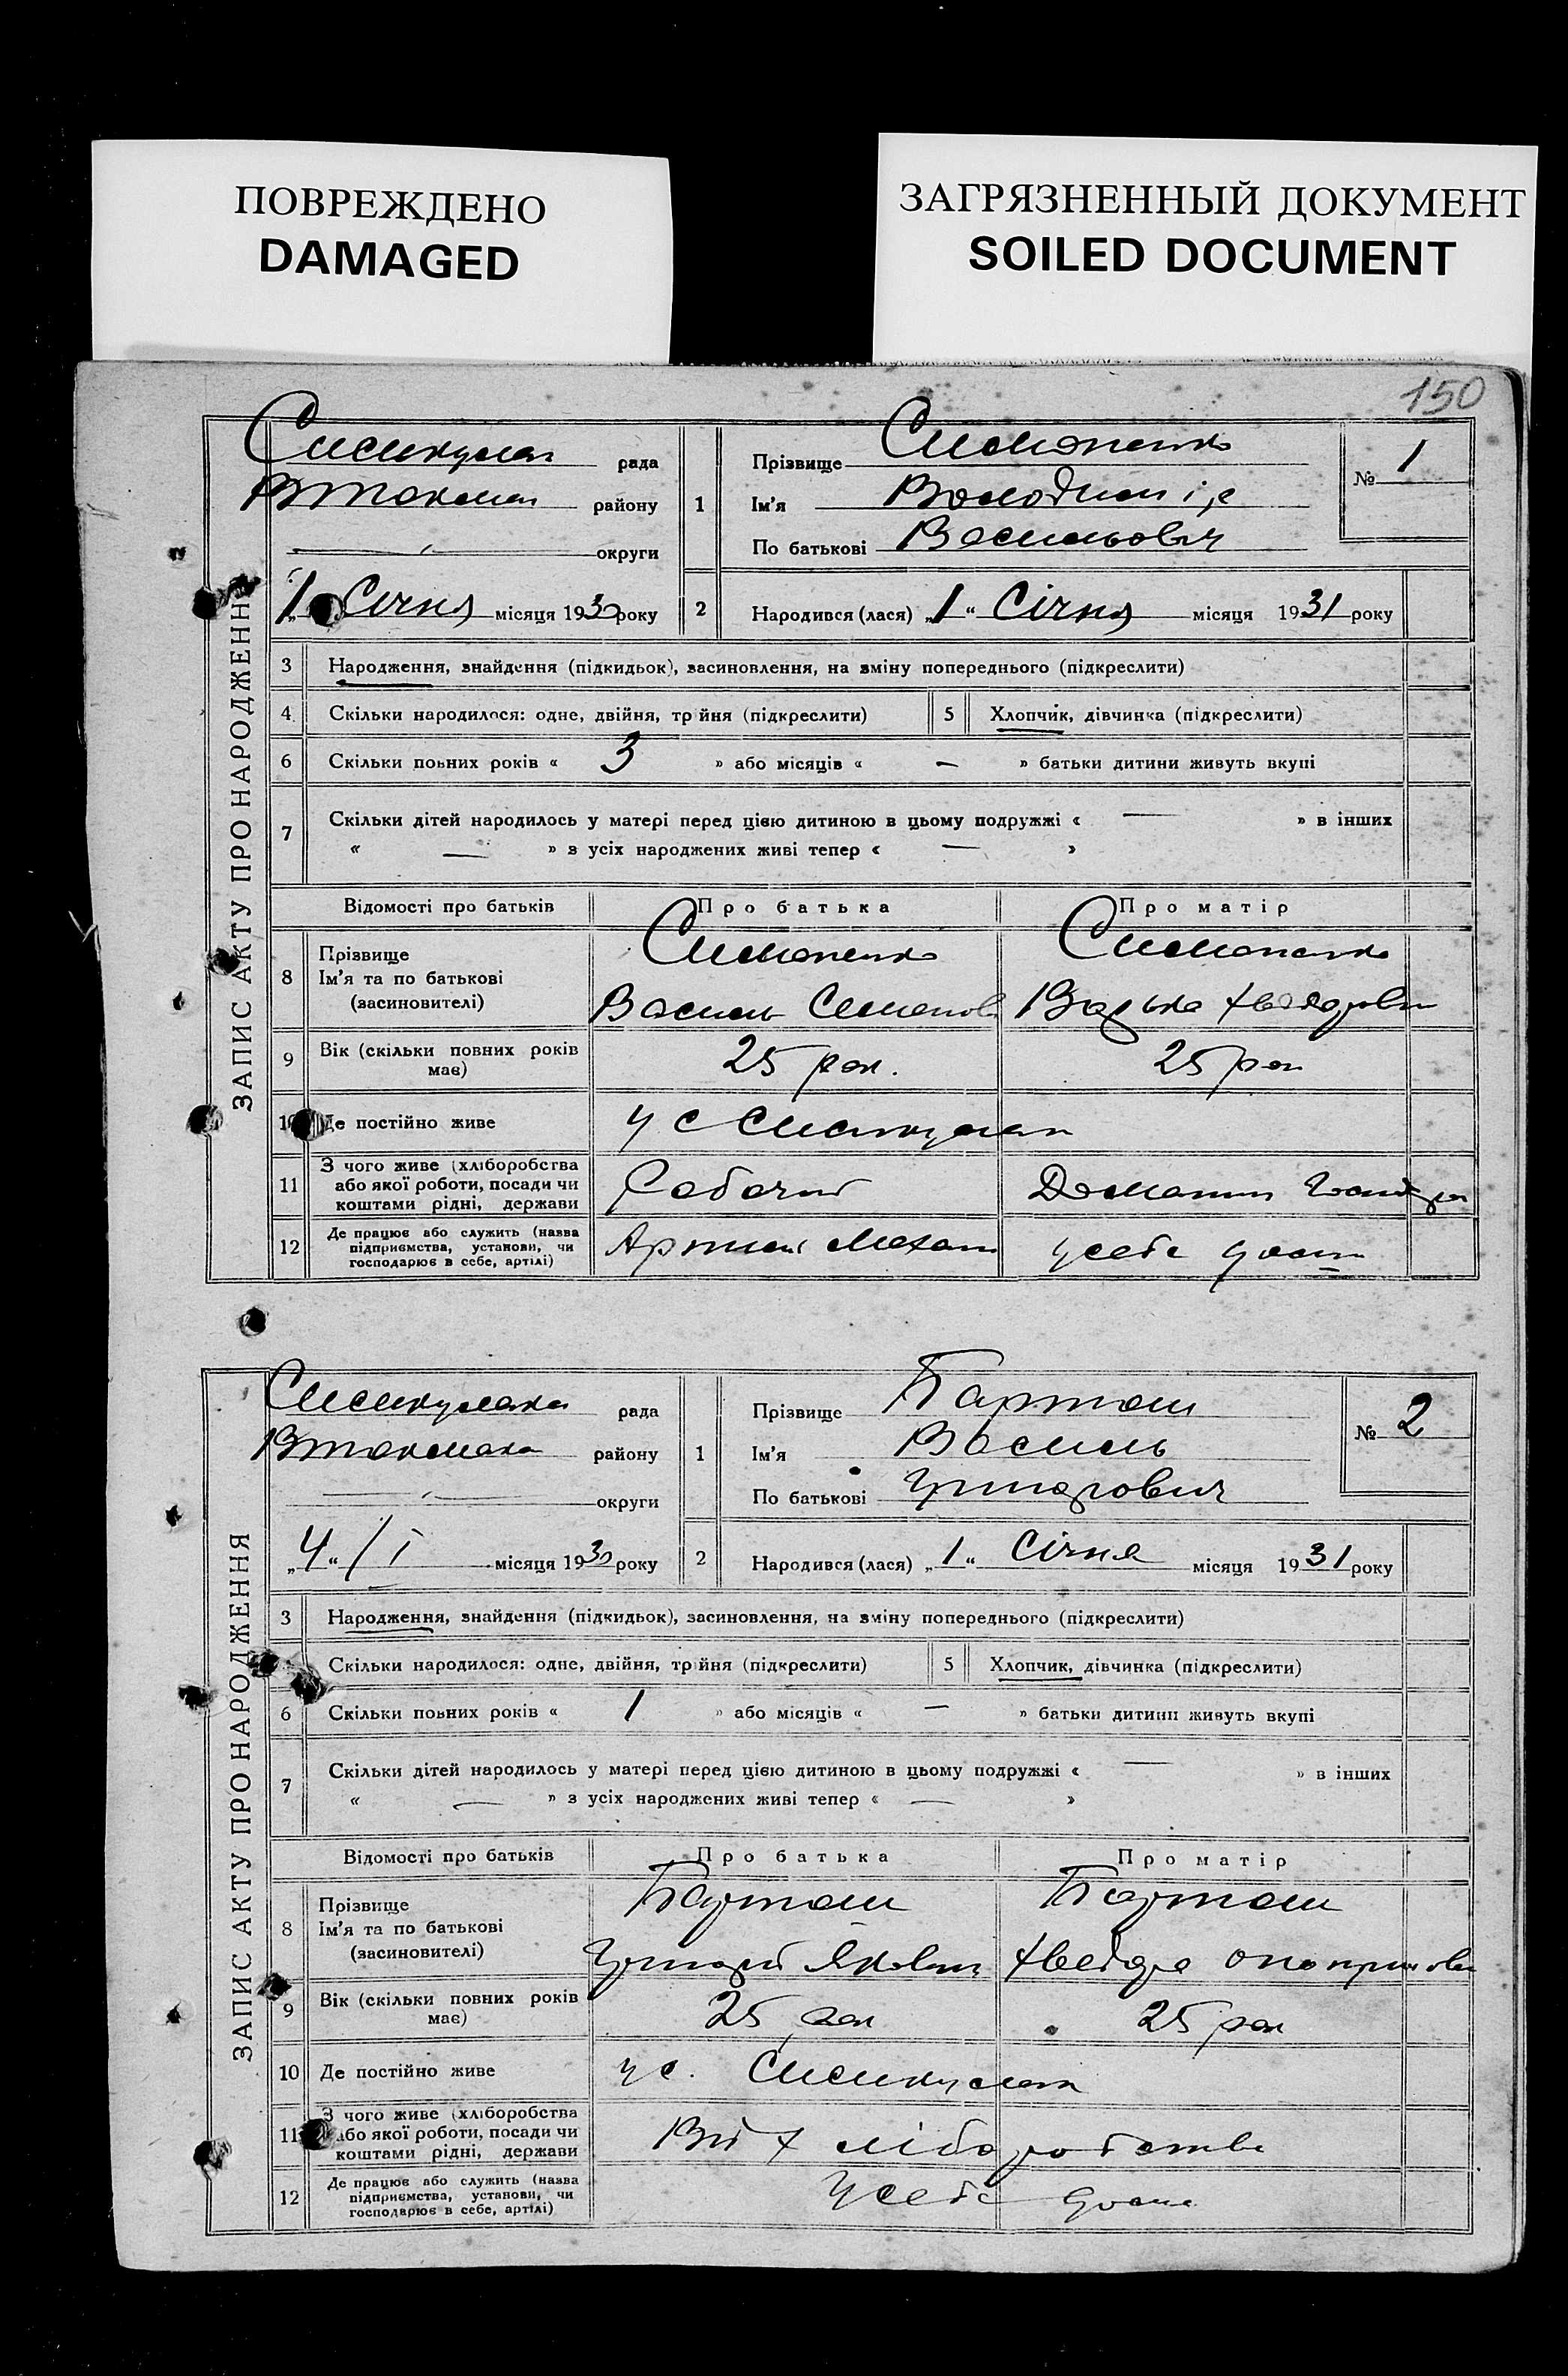 ПОВРЕЖДЕНО
DAMAGED
ЗАГРЯЗНЕННЫЙ ДОКУМЕНТ
SOILED DOCUMENT
150
ЗАПИС АКТУ ПРО НАРОДЖЕННЯ
рада
району
округи
„1 Січня місяця 1930 року
1
Прізвище Симоненко
Ім'я Володимір
По батькові Васильович
№ 1
2 Народився (лася) „1“ Січня місяця 1931 року
3 Народження, знайдення (підкидьок), засиновлення, на зміну попереднього (підкреслити)
4 Скільки народилося: одне, двійня, трійня (підкреслити) 5 Хлопчик, дівчинка (підкреслити)
6 Скільки повних років « 3 » або місяців « — » батьки дитини живуть вкупі
7 Скільки дітей народилось у матері перед цією дитиною в цьому подружжі « — » в інших
« — » з усіх народжених живі тепер « — »
Відомості про батьків Про батька Про матір
8 Прізвище
Ім'я та по батькові
(засиновителі)
Симоненко Симоненко
Василь
9 Вік (скільки повних років
має)
25 рок. 25 рок
10 Де постійно живе у с
11 З чого живе (хліборобства
або якої роботи, посади чи
коштами рідні, держави
Рабочий
12 Де працює або служить (назва
підприємства, установи, чи
господарює в себе, артілі)
ЗАПИС АКТУ ПРО НАРОДЖЕННЯ
рада
району
округи
„4“ / I місяця 1930 року
1
Прізвище Барташ
Ім'я Василь
По батькові Григорович
№ 2
2 Народився (лася) „1“ Січня місяця 1931 року
3 Народження, знайдення (підкидьок), засиновлення, на зміну попереднього (підкреслити)
Скільки народилося: одне, двійня, трійня (підкреслити) 5 Хлопчик, дівчинка (підкреслити)
6 Скільки повних років « 1 » або місяців « — » батьки дитини живуть вкупі
7 Скільки дітей народилось у матері перед цією дитиною в цьому подружжі « — » в інших
« — » з усіх народжених живі тепер « — »
Відомості про батьків Про батька Про матір
8 Прізвище
Ім'я та по батькові
(засиновителі)
Барташ Барташ
Григорій Якович
9 Вік (скільки повних років
має)
25 рок 25 рок
10 Де постійно живе у с.
11 З чого живе (хліборобства
або якої роботи, посади чи
коштами рідні, держави
Від хліборобства
12 Де працює або служить (назва
підприємства, установи, чи
господарює в себе, артілі)